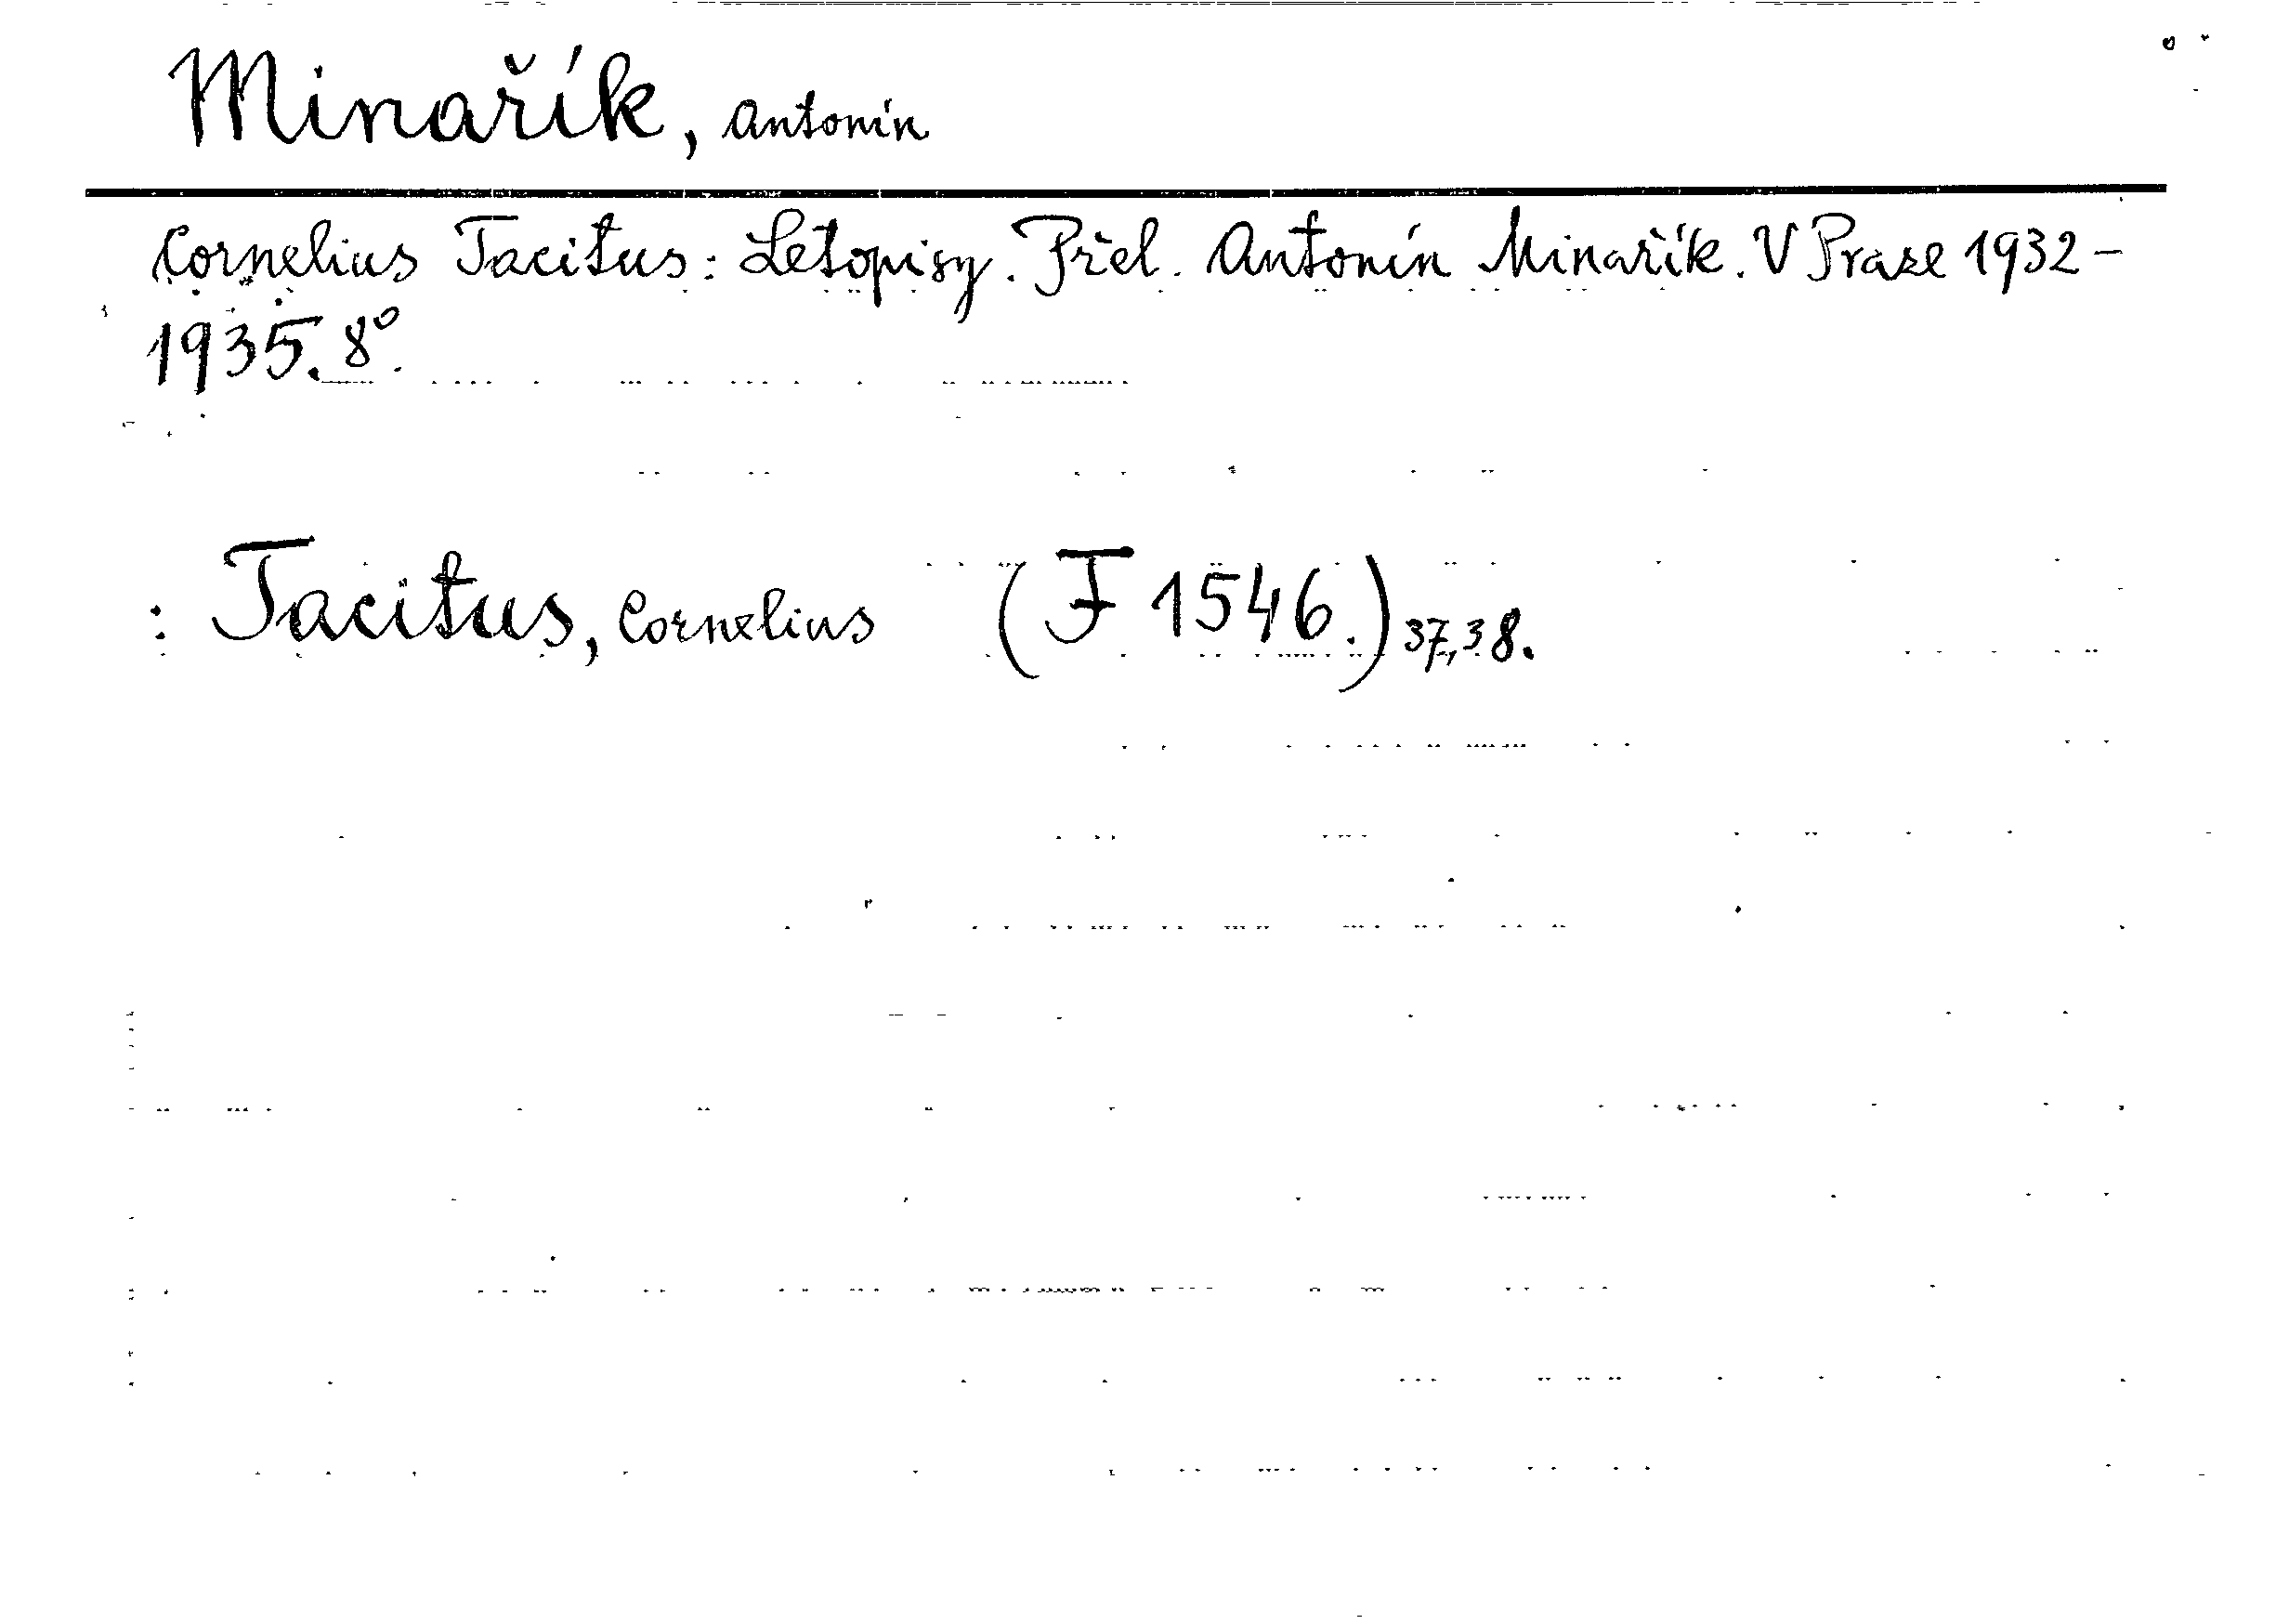 Minařík, Antonín
Cornelius Tacitus: Letopisy. Přel. Antonín Minařík. V Praze 1932-
1935. 8°.
: Tacitus, Cornelius (F 1546.) 37,38.